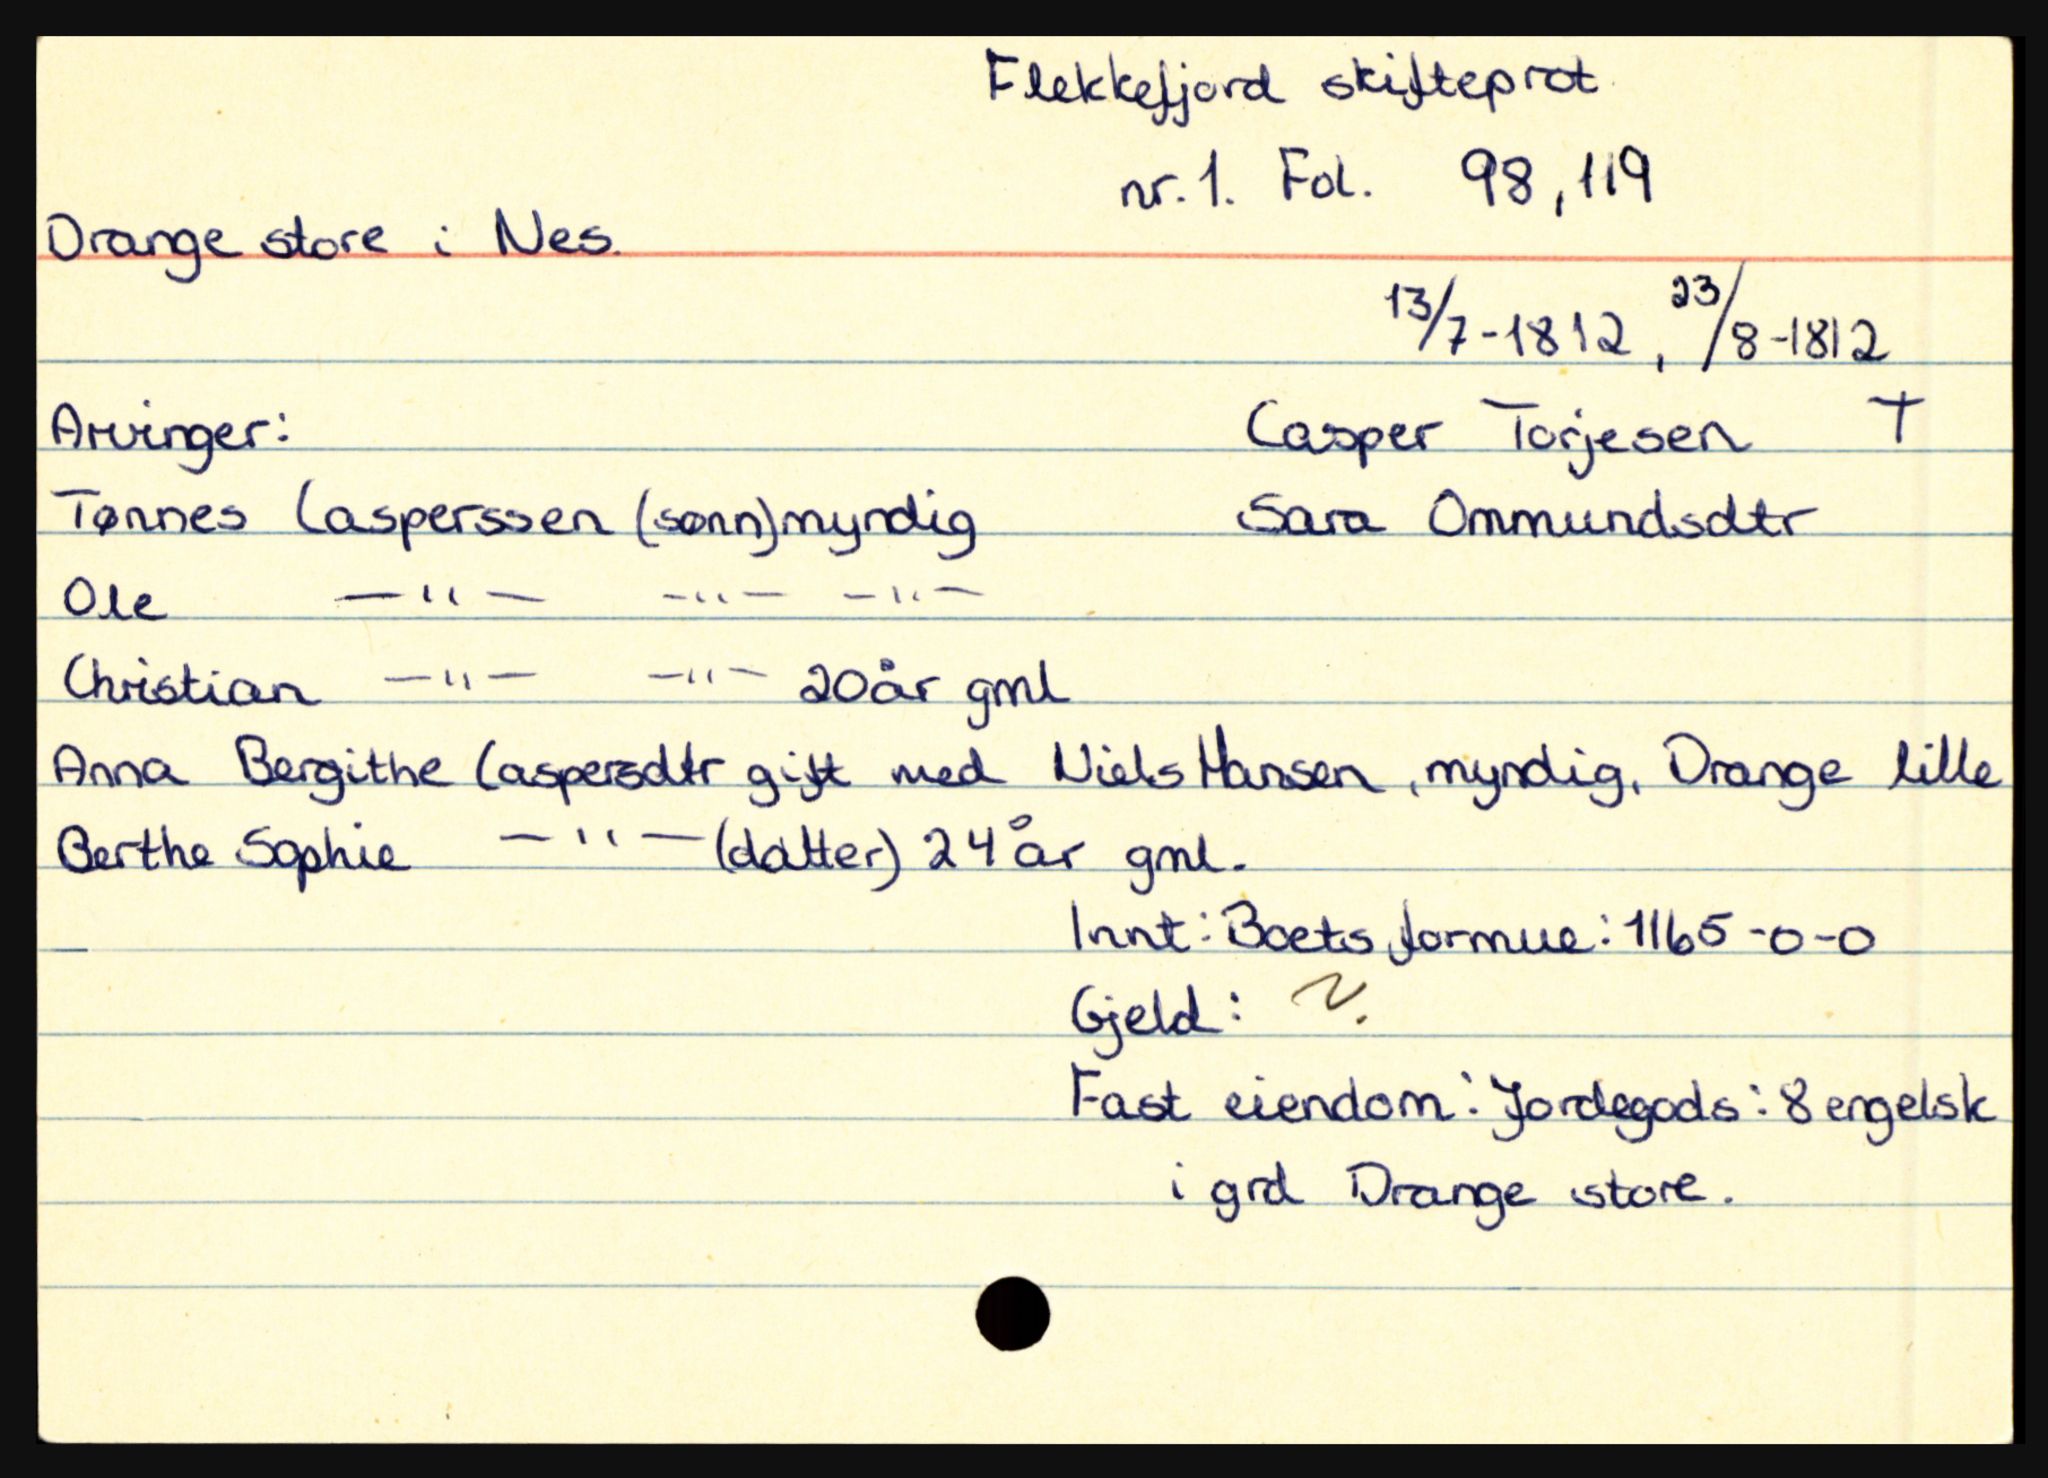 Flekkefjord skifteprot.
nr. 1. Fol. 98, 119
Drange store i Nes.
13/7-1812, 23/8-1812
Arvinger: Casper Torjesen †
Tønnes Casperssen (sønn) myndig Sara Ommundsdtr
Ole —"— —"— —"—
Christian —"— —"— 20 år gml
Anna Bergithe Caspersdtr gift med Niels Hansen, myndig, Drange lille
Berthe Sophie —"— (datter) 24 år gml.
Innt: Boets formue: 1165-0-0
Gjeld:
Fast eiendom: Jordegods: 8 engelsk
i grd Drange store.